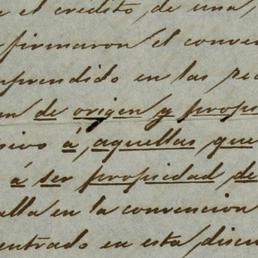 e el crédito, de una,
firmaron el conven
mprendido en las re
en de origen y propi
sivo á, aquellas que
á ser propiedad de
alla en la convencion
entrado en esta discu